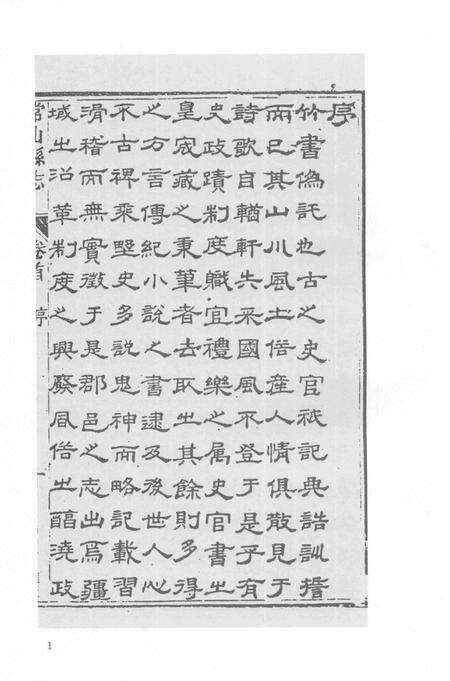 序
竹書偽託也古之史官祗記典誥訓誓
而已其山川風土俗產人情俱散見于
詩歌自輶軒失采國風不登于是乎有
史政蹟制度職官禮樂之属史官書之
皇宬藏之秉筆者去取之其餘則多得
之方言傳紀小說之書逮及後世人心
不古稗乘野史多說鬼神而略記載習
滑稽而無實徵于是郡邑之志出焉疆
域之沿革制度之興廢風俗之醕澆政
常山縣志 卷首 序
1